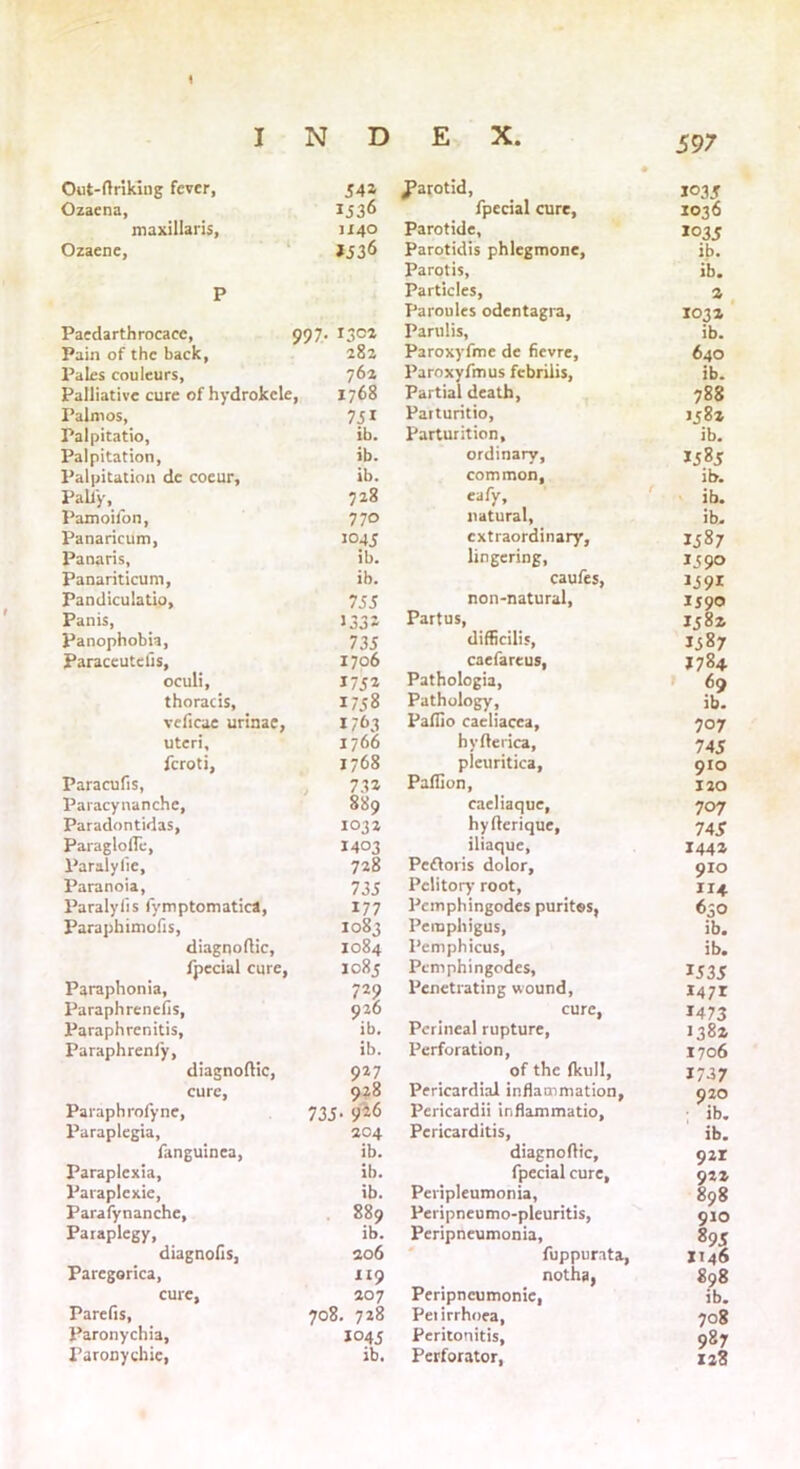 INDEX.
597
Out-ſtriking fever, 542
Ozaena, 1536
maxillaris, 1140
Ozaene, 1536
P
Paedarthrocace, 997. 1302
Pain of the back, 282
Pales couleurs, 762
Palliative cure of hydrokele, 1768
Palmos, 751
Palpitatio, ib.
Palpitation, ib.
Palpitation de coeur, ib.
Palſy, 728
Pamoiſon, 770
Panaricum, 1045
Panaris, ib.
Panariticum, ib.
Pandiculatio, 755
Panis, 1332
Panophobia, 735
Paraceuteſis, 1706
oculi, 1752
thoracis, 1758
veſicae urinae, 1763
uteri, 1766
ſcroti, 1768
Paracuſis, 732
Paracynanche, 889
Paradontidas, 1032
Paragloſſe, 1403
Paralyſie, 728
Paranoia, 735
Paralyſis ſymptomatica, 177
Paraphimoſis, 1083
diagnoſtic, 1084
ſpecial cure, 1085
Paraphonia, 729
Paraphreneſis, 926
Paraphrenitis, ib.
Paraphrenſy, ib.
diagnoſtic, 927
cure, 928
Paraphroſyne, 735. 926
Paraplegia, 204
ſanguinea, ib.
Paraplexia, ib.
Paraplexie, ib.
Paraſynanche, 889
Paraplegy, ib.
diagnoſis, 206
Paregorica, 119
cure, 207
Pareſis, 708. 728
Paronychia, 1045
Paronychie, ib.
Parotid, 1035
ſpecial cure, 1036
Parotide, 1035
Parotidis phlegmone, ib.
Parotis, ib.
Particles, 2
Paroules odentagra, 1032
Parulis, ib.
Paroxyſme de fievre, 640
Paroxyſmus febrilis, ib.
Partial death, 788
Parturitio, 1582
Parturition, ib.
ordinary, 1585
common, ib.
eaſy, ib.
natural, ib.
extraordinary, 1587
lingering, 1590
cauſes, 1591
non-natural, 1590
Partus, 1582
difficilis, 1587
caeſareus, 1784
Pathologia, 69
Pathology, ib.
Paſſio caeliacea, 707
hyſterica, 745
pleuritica, 910
Paſſion, 120
caeliaque, 707
hyſterique, 745
iliaque, 1442
Pectoris dolor, 910
Pelitory root, 114
Pemphingodes purites, 630
Pemphigus, ib.
Pemphicus, ib.
Pemphingodes, 1535
Penetrating wound, 1471
cure, 1473
Perineal rupture, 1382
Perforation, 1706
of the ſkull, 1737
Pericardial inflammation, 920
Pericardii inflammatio, ib.
Pericarditis, ib.
diagnoſtic, 921
ſpecial cure, 922
Peripleumonia, 898
Peripneumo-pleuritis, 910
Peripneumonia, 895
ſuppurata, 1146
notha, 898
Peripneumonie, ib.
Perirrhoea, 708
Peritonitis, 987
Perforator, 128